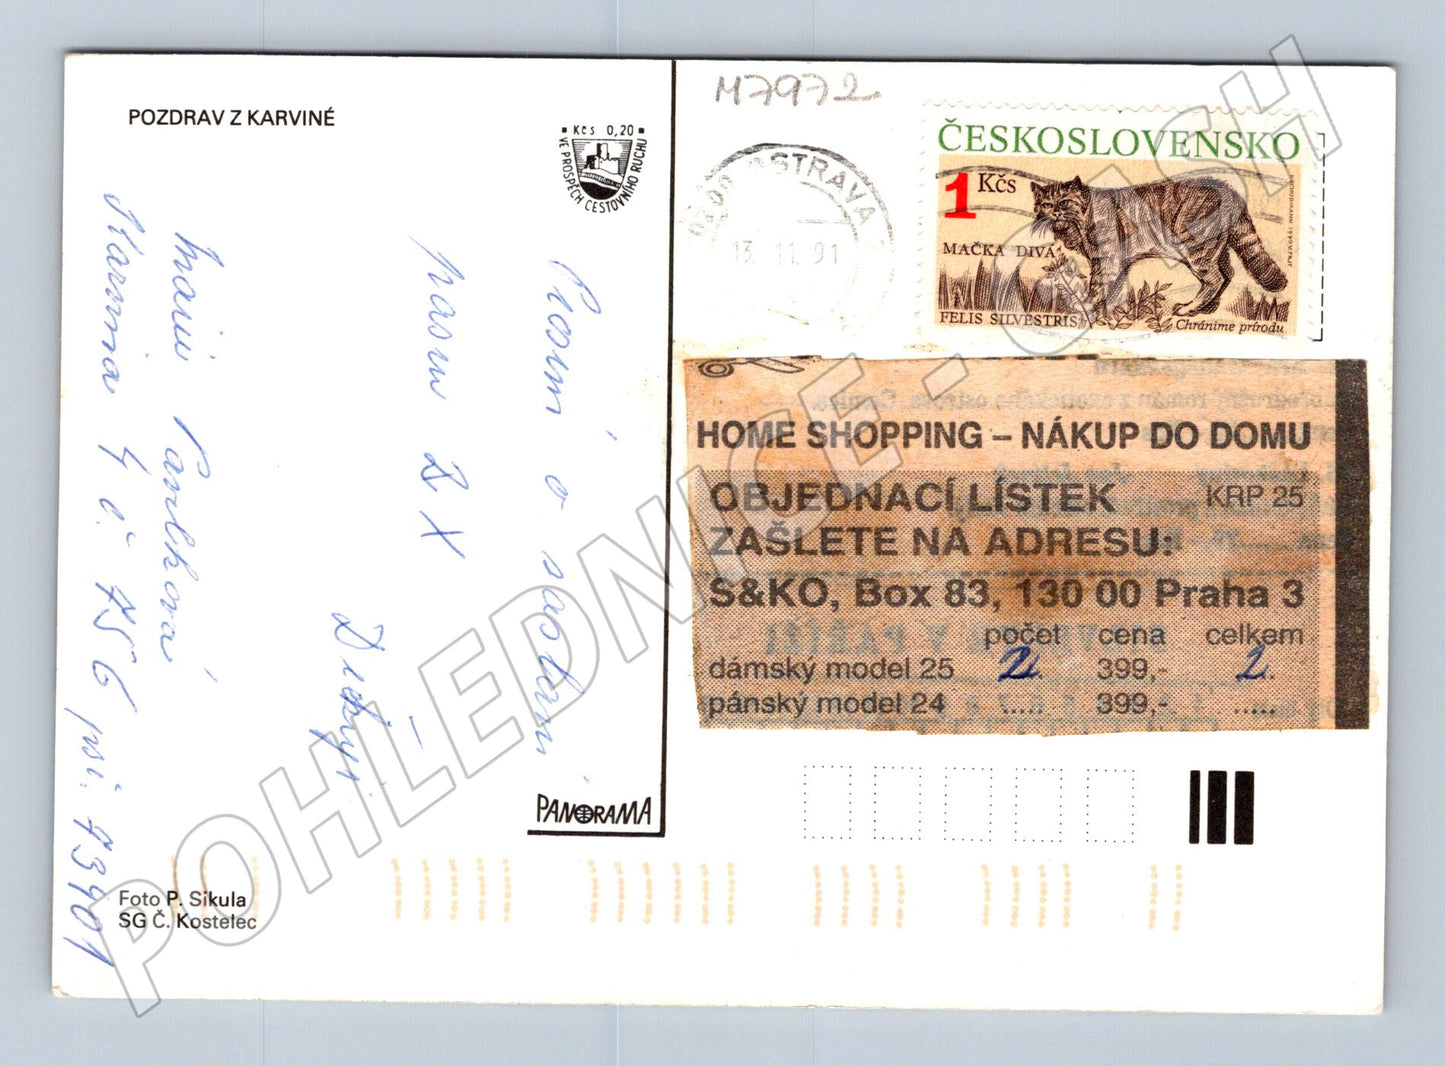 POZDRAV Z KARVINÉ
Kčs 0,20
VE PROSPĚCH CESTOVNÍHO RUCHU
M7972
OSTRAVA
13. 11. 91
ČESKOSLOVENSKO
1 Kčs
MAČKA DIVÁ
FELIS SILVESTRIS
Chráníme prírodu
HOME SHOPPING – NÁKUP DO DOMU
OBJEDNACÍ LÍSTEK KRP 25
ZAŠLETE NA ADRESU:
S&KO, Box 83, 130 00 Praha 3
počet cena celkem
dámský model 25 2. 399,- 2.
pánský model 24 ..... 399,- ......
Prosím o zaslání
2 X
Děkuji
Marie Pavlková
Karviná 4 č. 756 psč. 73401
PANORAMA
Foto P. Sikula
SG Č. Kostelec
POHLEDNICE - CASH